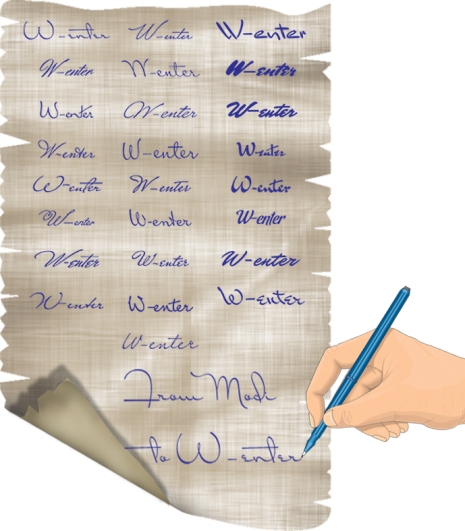 W-enter W-enter W-enter
W-enter W-enter W-enter
W-enter W-enter W-enter
W-enter W-enter W-enter
W-enter W-enter W-enter
W-enter W-enter W-enter
W-enter W-enter W-enter
W-enter W-enter W-enter
W-enter
From Modi
to W-enter